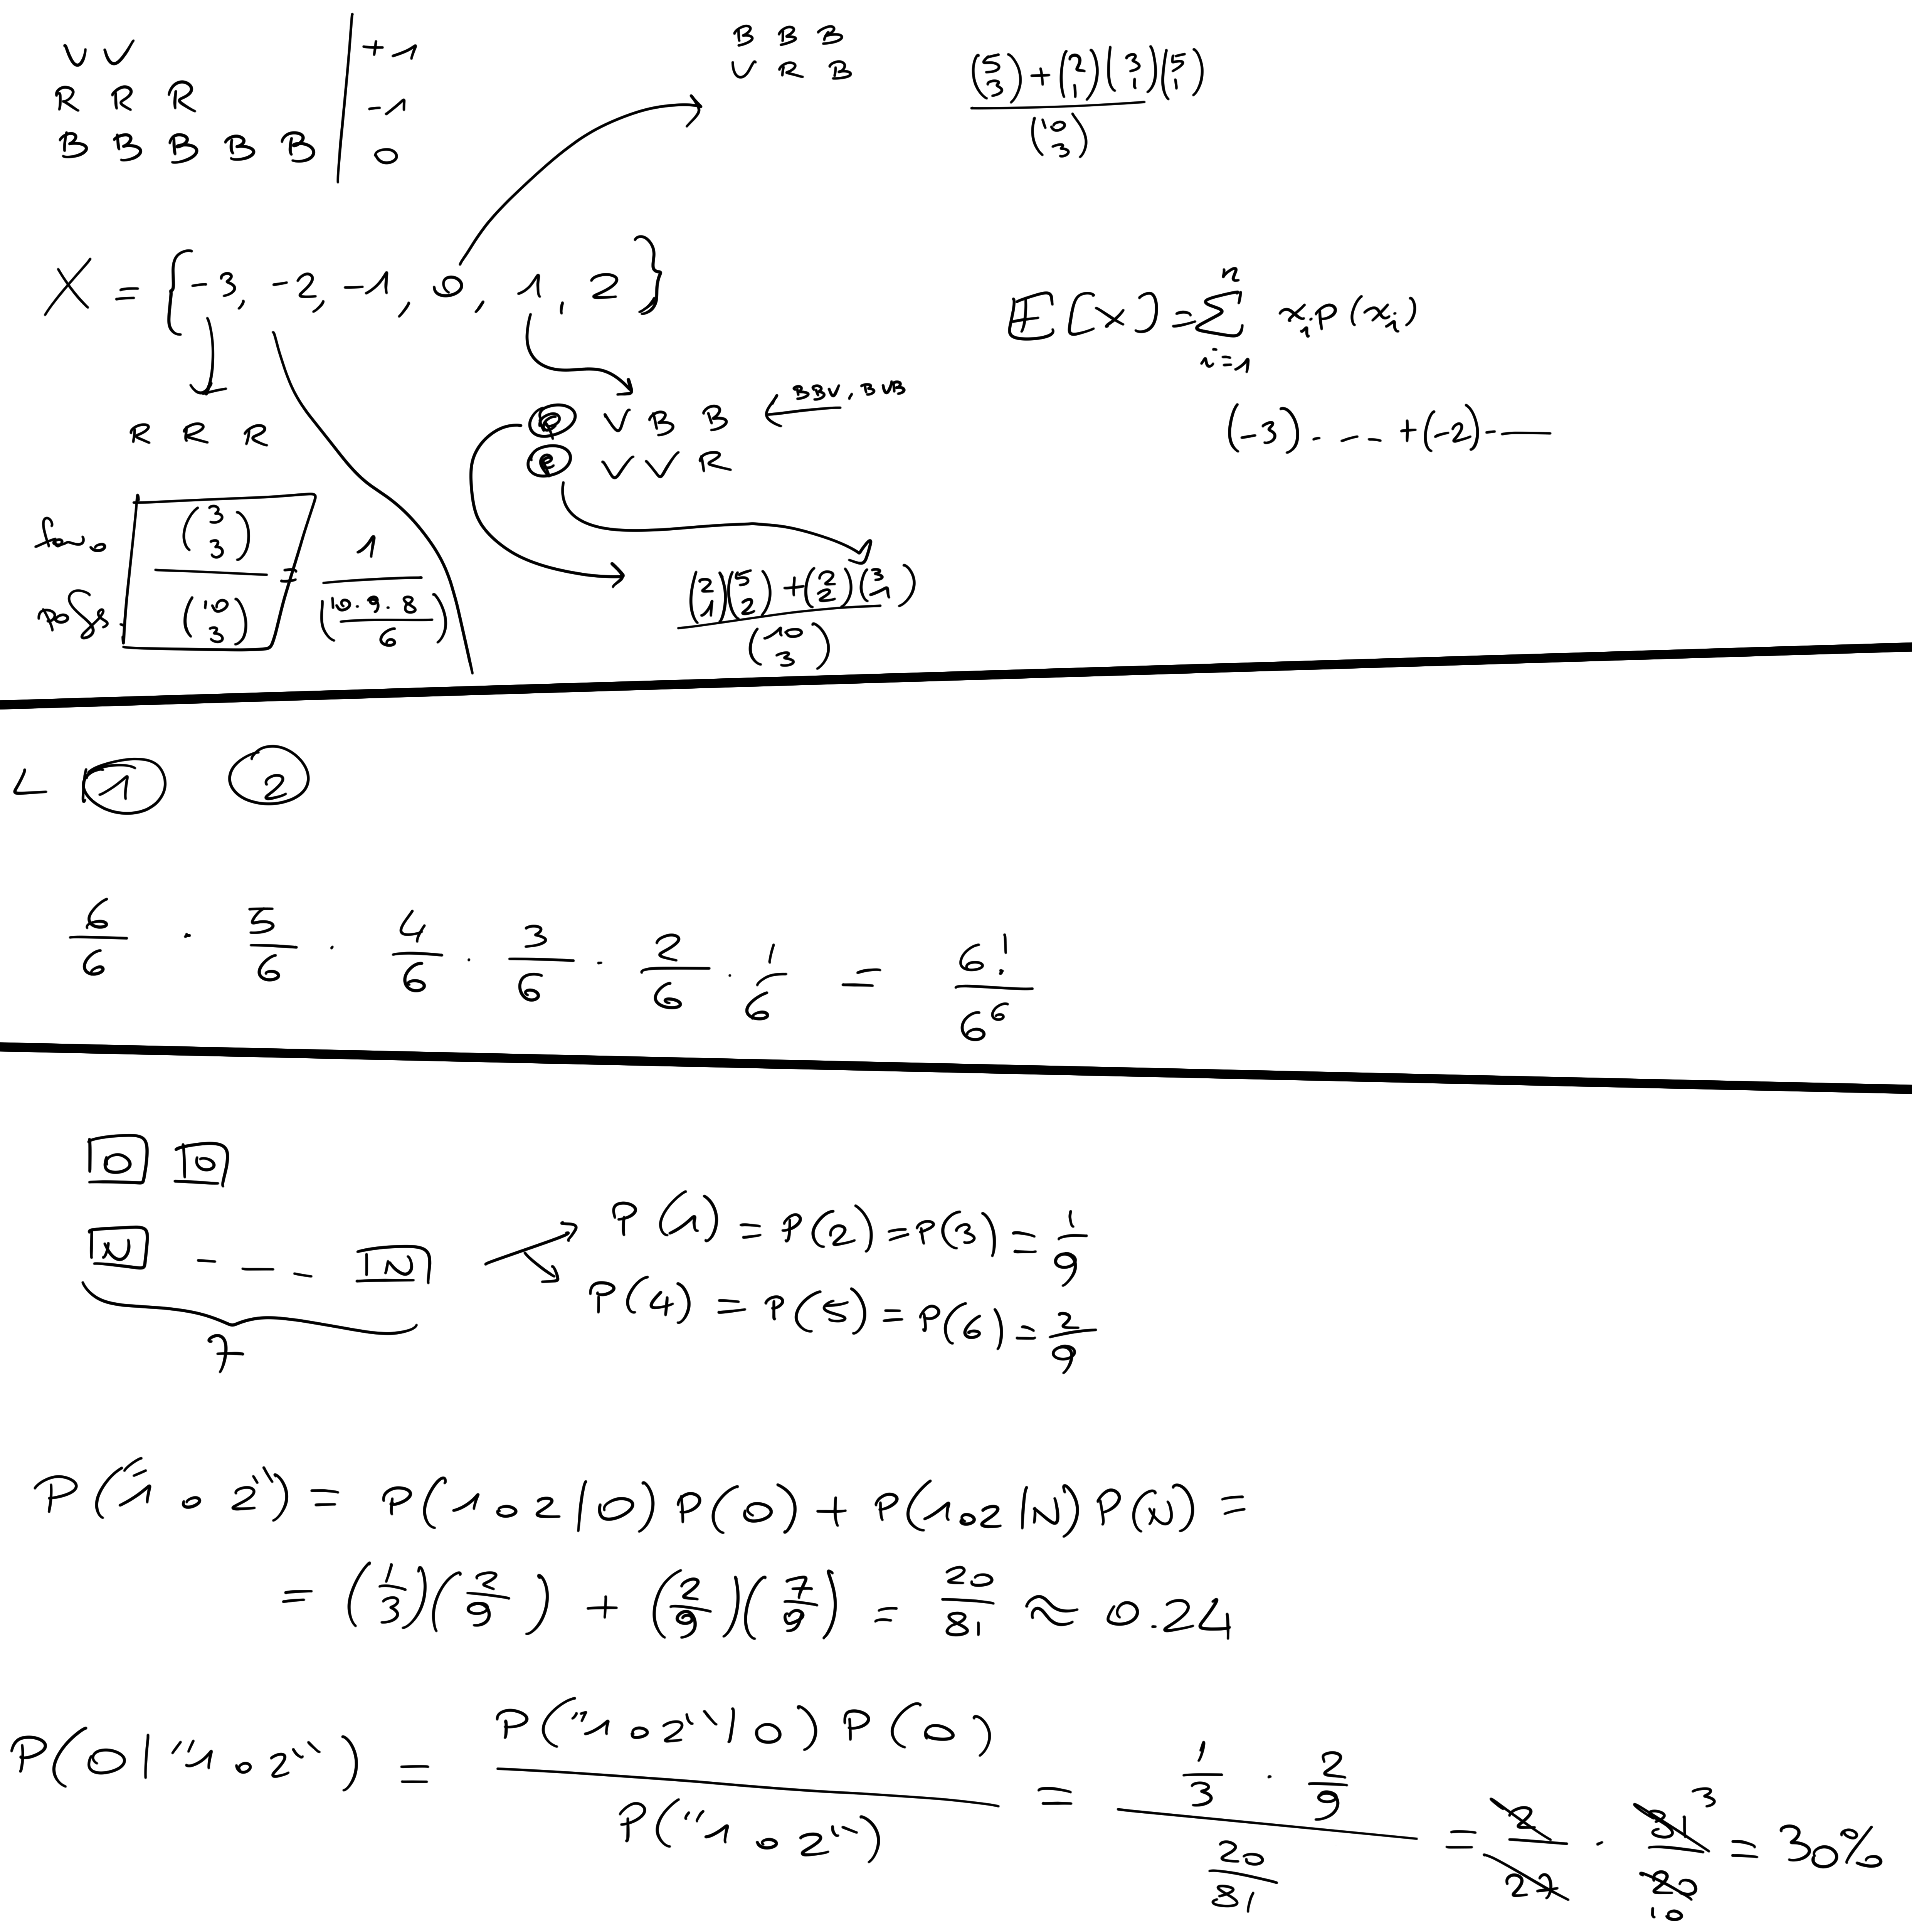 V V
R R R
B B B B B
+1
-1
0
B B B
V R B
\frac{\binom{5}{3} + \binom{2}{1}\binom{3}{1}\binom{5}{1}}{\binom{10}{3}}
X = {-3, -2, -1, 0, 1, 2}
E[X] = \sum_{i=1}^{n} x_i P(x_i)
(-3) - - - + (-2) - —
R R R
V B B ← BBV, BVB
V V R
fav.
poss.
\frac{\binom{3}{3}}{\binom{10}{3}} = \frac{1}{(\frac{10 \cdot 9 \cdot 8}{6})}
\frac{\binom{2}{1}\binom{5}{2} + \binom{2}{2}\binom{3}{1}}{\binom{10}{3}}
L 1 2
\frac{6}{6} · \frac{5}{6} · \frac{4}{6} · \frac{3}{6} · \frac{2}{6} · \frac{1}{6} = \frac{6!}{6^6}
O O
N - - - N
7
P(1) = P(2) = P(3) = \frac{1}{9}
P(4) = P(5) = P(6) = \frac{2}{9}
P("1 o 2") = P(1 o 2 | O) P(O) + P(1 o 2 | N) P(N) =
= (\frac{1}{3})(\frac{2}{9}) + (\frac{2}{9})(\frac{7}{9}) = \frac{20}{81} ≈ 0.24
P(O | "1 o 2") = \frac{P("1 o 2" | O) P(O)}{P("1 o 2")} = \frac{\frac{1}{3} · \frac{2}{9}}{\frac{20}{81}} = \frac{2}{27} · \frac{81}{20} = 30%
3
10